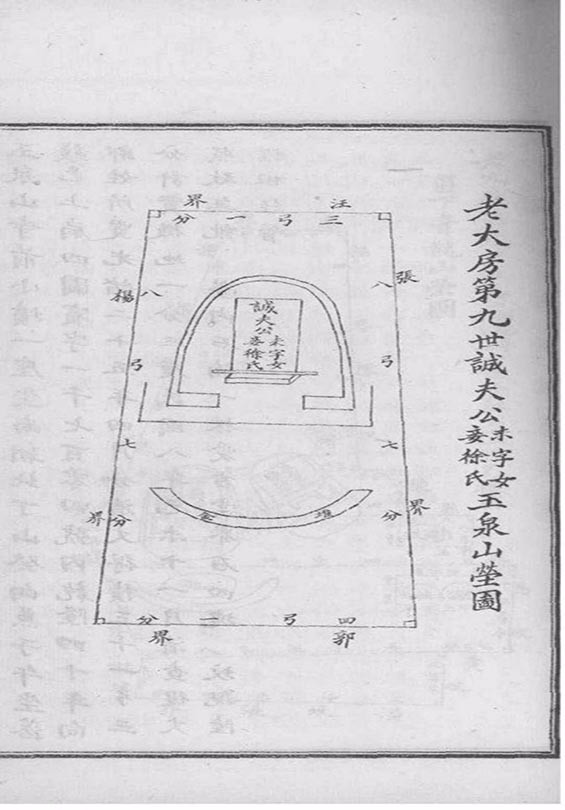 老大房第九世誠夫公未字女妾徐氏玉泉山塋圖
汪界
三弓一分
張界
八弓七分
楊界
八弓七分
誠夫公
未字女
妾徐氏
堆金
四弓一分
郭界